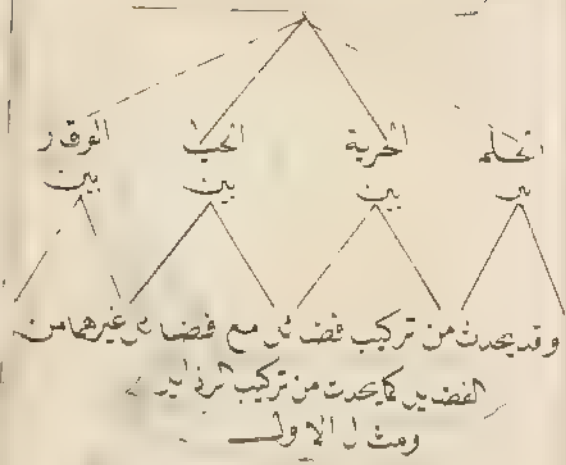 الحلم الحرية الحيا الوقار
بين بين بين بين
وقد يحدث من تركيب فضائل مع فضائل غيرها من
الفضايل كما يحدث من تركيب الرذايل
ومثال الاول